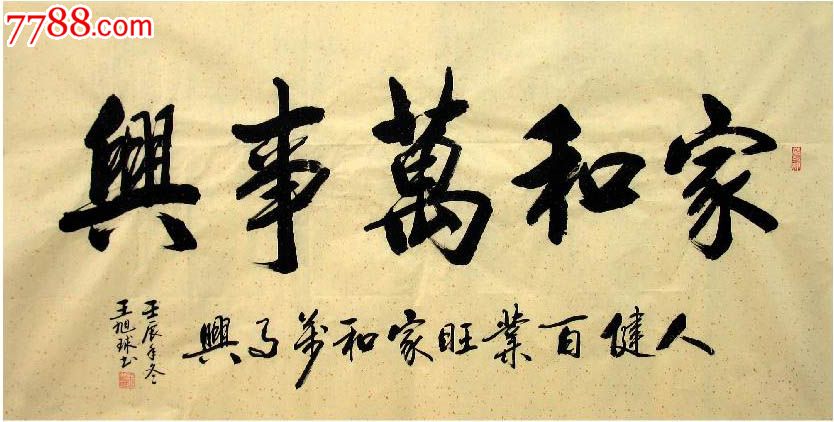 7788.com
家和萬事興
人健百業旺家和萬事興
壬辰年冬
王旭球书